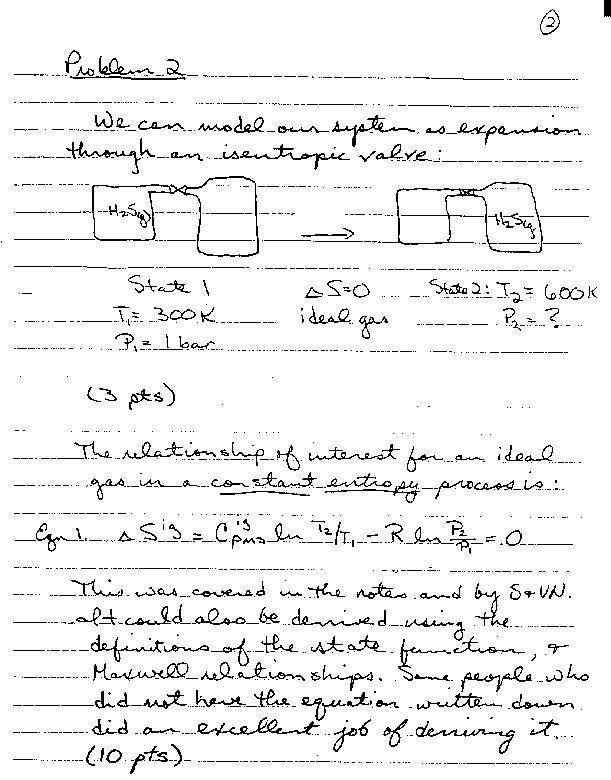 2
Problem 2
We can model our system as expansion
through an isentropic valve:
H₂S(g) H₂S(g)
State 1 ΔS=0 State 2: T₂ = 600K
T₁ = 300K ideal gas P₂ = ?
P₁ = 1 bar
(3 pts)
The relationship of interest for an ideal
gas in a constant entropy process is:
Eqn 1. ΔS^ig = C^ig_pms ln T₂/T₁ - R ln P₂/P₁ = 0
This was covered in the notes and by S+VN.
It could also be derived using the
definitions of the state function, +
Maxwell relationships. Some people who
did not have the equation written down
did an excellent job of deriving it.
(10 pts)